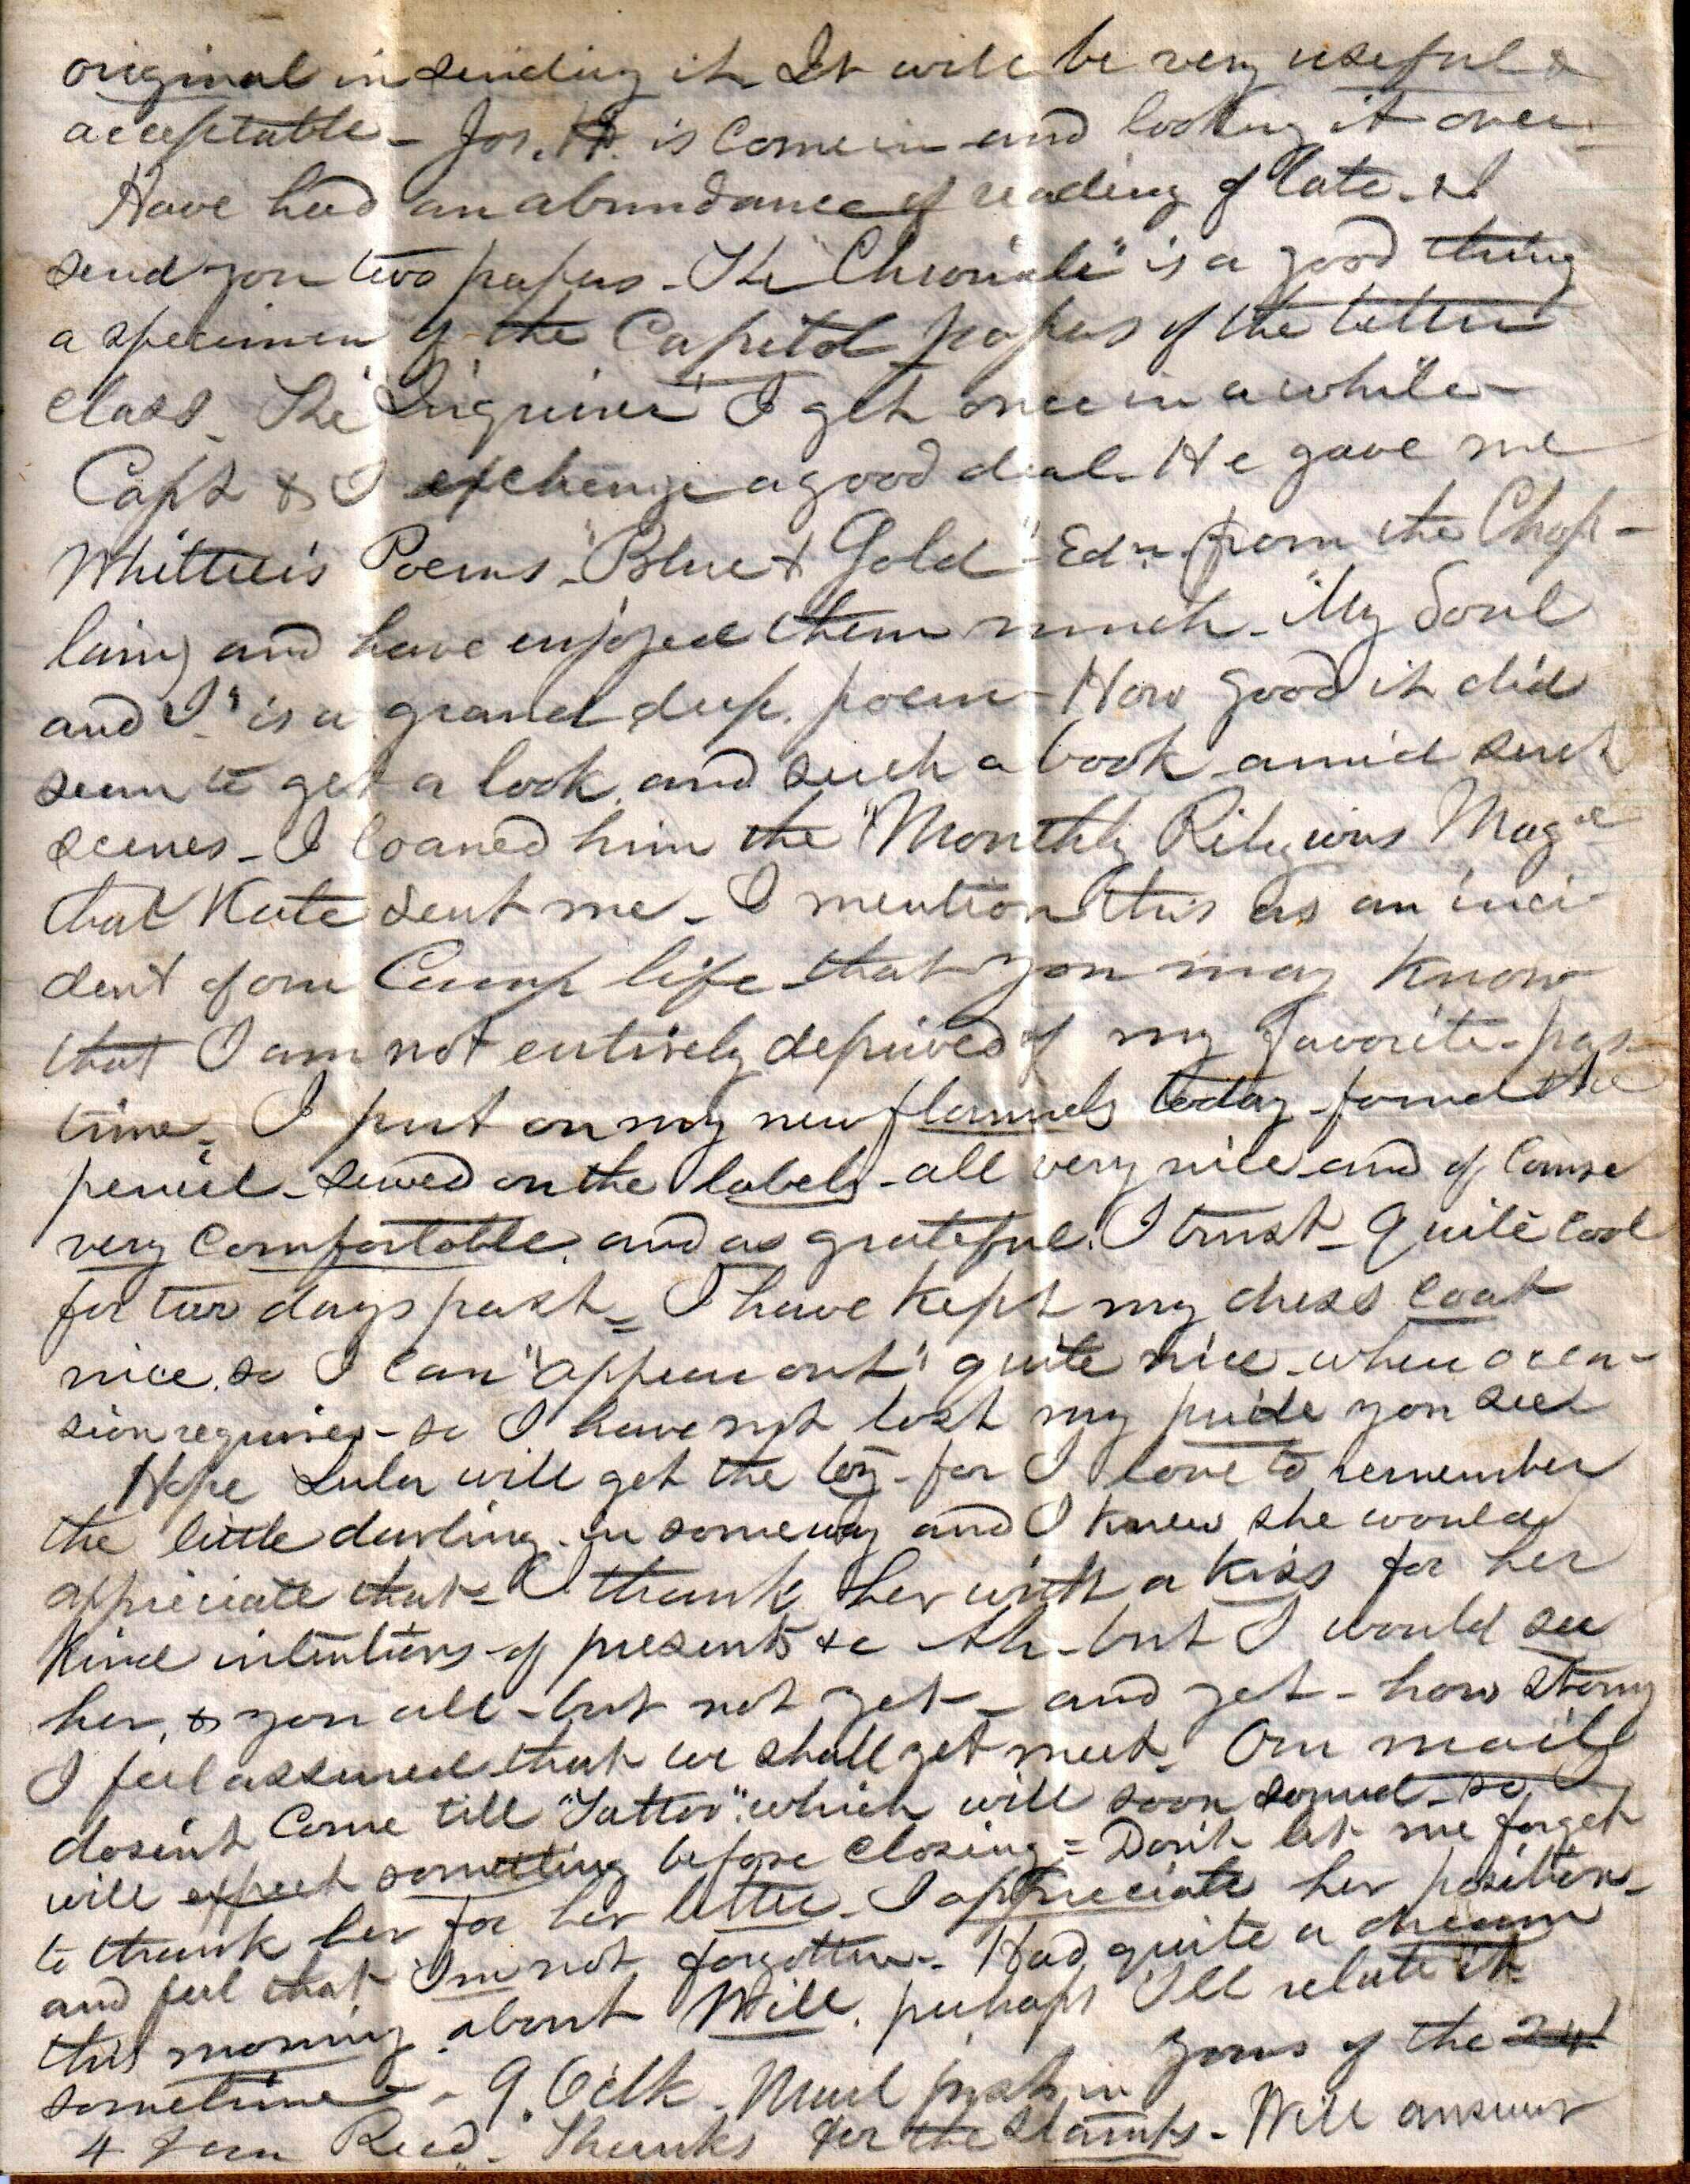 original in sending it. It will be very useful &
acceptable - Jos. H. is come in and looking it over -
Have had an abundance of reading of late. I
send you two papers - The "Chronicle" is a good thing
a specimen of the Capitol papers of the better
class. The "Inquirer" I get once in a while -
Capt & I exchange a good deal. He gave me
Whittier's Poems - "Blue & Gold" Edn. from the Chap-
lain) and have enjoyed them much - "My Soul
and I" is a grand deep poem - How good it did
seem to get a look, and such a book amid such
scenes - I loaned him the "Monthly Religious Mage
that Kate sent me - I mention this as an inci-
dent of our Camp life that you may know
that I am not entirely deprived of my favorite pas-
time = I put on my new flannels today - found the
pencil - sewed on the labels - all very nice and of course
very comfortable, and as grateful, I trust - Quite cool
for two days past = I have kept my dress coat
nice, so I can "appear out" quite nice - when occa-
sion requires - so I have not lost my pride you see
Hope Lulu will get the toy - for I love to remember
the little darling in someway and I knew she would
appreciate that - I thank her with a kiss for her
kind intentions of presents &c Ah - but I would see
her, & you all - but not yet - and yet - how strong
I feel assured that we shall yet meet - Our mail
dosen't come till "Tattoo" which will soon sound - so I
will expect something before closing = Don't let me forget
to thank her for her letter - I appreciate her position -
and feel that I'm not forgotten - Had quite a dream
this morning about Will. perhaps I'll relate it
sometime - - 9. O'clk - Mail just in yours of the 24
4 Recd - Thanks for the stamps - Will answer